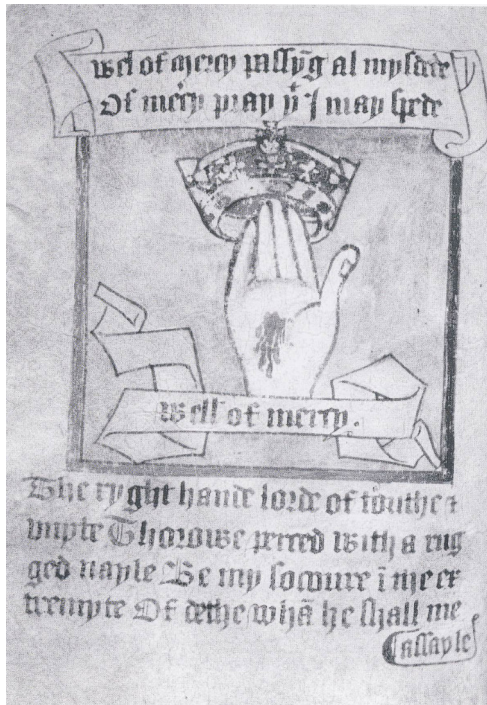 wel of mercy passyg̃ al mysdede
Of mercy pray yͭ I may spede
well of mercy.
The ryght hande lorde of trouthe &
vnyte Thorowe perced with a rug
ged nayle Be my socoure ī the ex
tremyte Of dethe whā he shall me
assayle